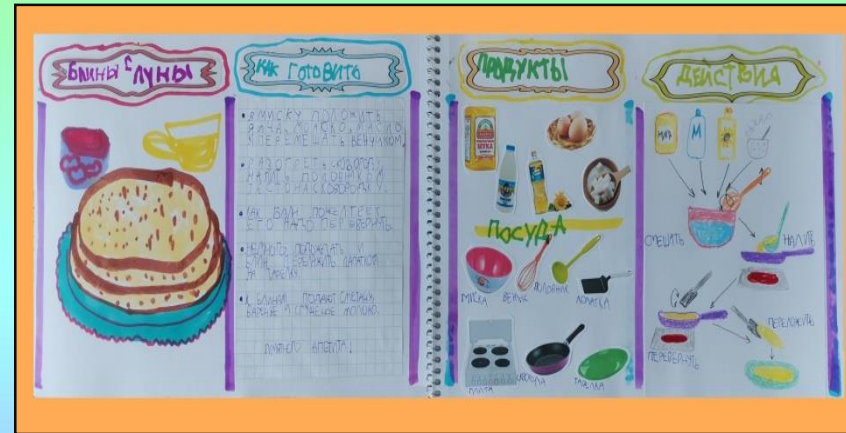 БЛИНЫ С ЛУНЫ
КАК ГОТОВИТЬ
В МИСКУ ПОЛОЖИТЬ
И ПЕРЕМЕШАТЬ ВЕНЧИКОМ.
РАЗОГРЕТЬ СКОВОРОДУ,
ТЕСТО НА СКОВОРОДУ.
КАК БЛИН ПОЖЕЛТЕЕТ
ЕГО НАДО ПЕРЕВЕРНУТЬ.
НЕМНОГО ПОДОЖДАТЬ И
БЛИН ПЕРЕЛОЖИТЬ
НА ТАРЕЛКУ.
К БЛИНАМ ПОДАЮТ СМЕТАНУ,
ВАРЕНЬЕ И СГУЩЁНОЕ МОЛОКО.
ПРИЯТНОГО АППЕТИТА!
ПРОДУКТЫ
МУКА
ПОСУДА
МИСКА
ВЕНЧИК
ПОЛОВНИК
ЛОПАТКА
ПЛИТА
ТАРЕЛКА
ДЕЙСТВИЯ
М
СМЕШАТЬ
НАЛИТЬ
ПЕРЕЛОЖИТЬ
ПЕРЕВЕРНУТЬ